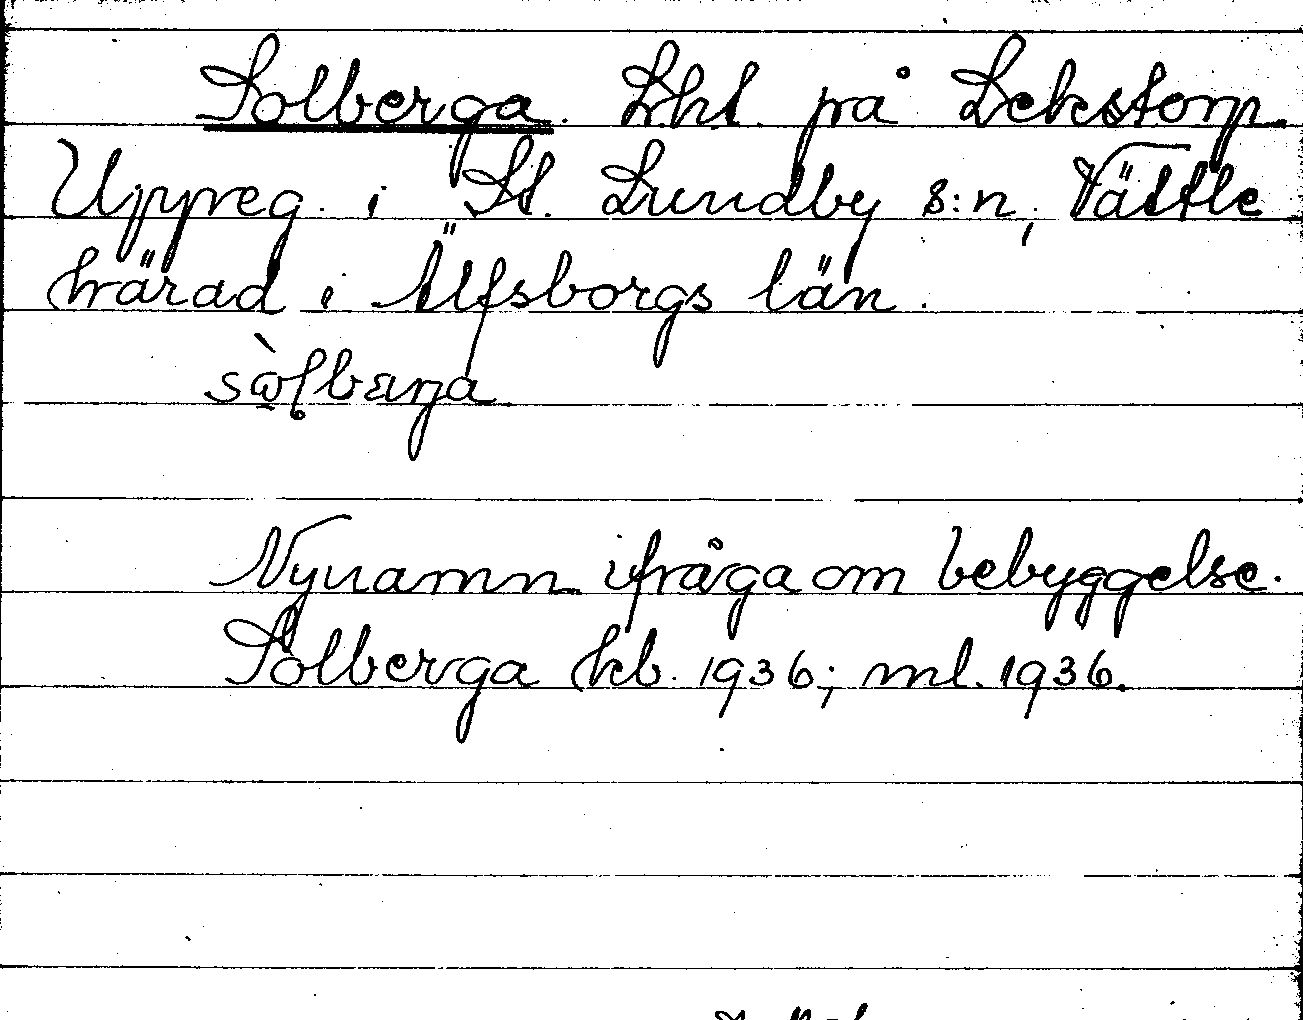 Solberga. Lht. på Lekstorp
Uppreg. i St. Lundby s:n, Vättle
härad i Älfsborgs län.
Nynamn ifråga om bebyggelse.
Solberga kb. 1936; ml. 1936.